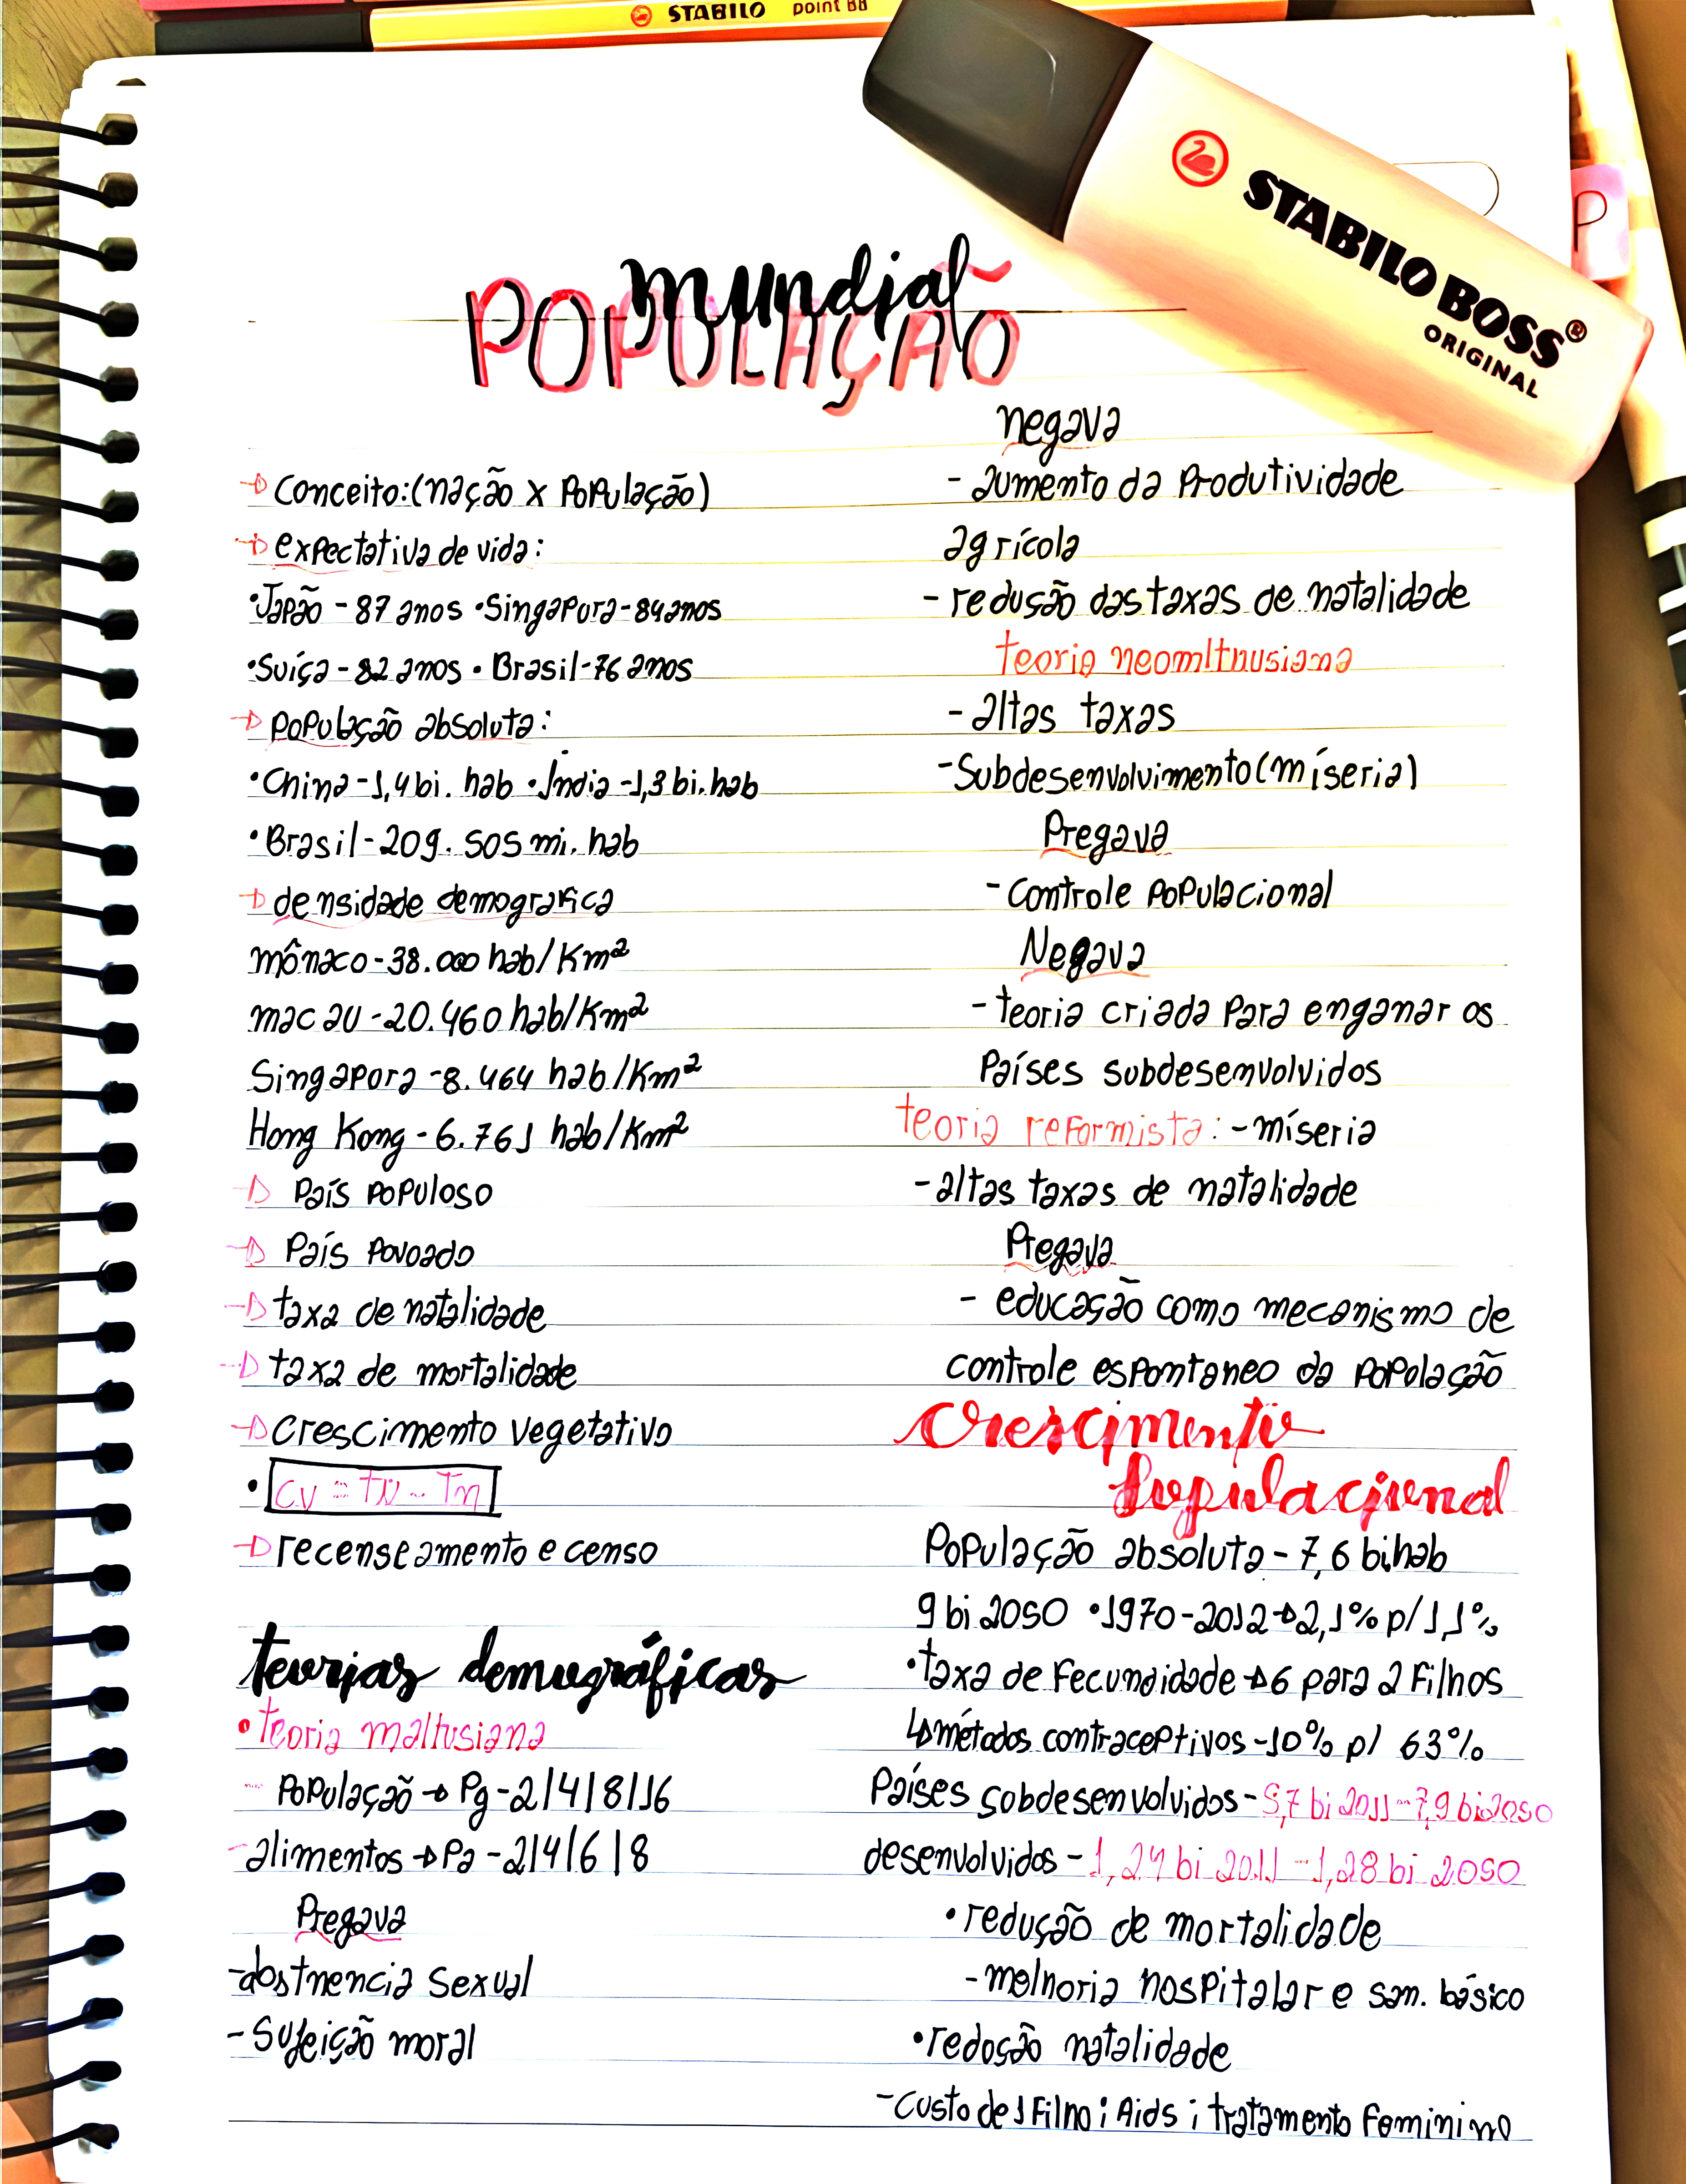 STABILO point 88
STABILO BOSS®
ORIGINAL
P
mundial
POPULAÇÃO
Conceito: (nação x População)
expectativa de vida:
•Japão - 87 anos •Singapura - 84 anos
•Suíça - 82 anos • Brasil - 76 anos
População absoluta:
•China - 1,4 bi. hab •Índia - 1,3 bi. hab
•Brasil - 209. 505 mi. hab
densidade demografica
mônaco - 38.000 hab/Km²
macau - 20.460 hab/Km²
Singapora - 8.464 hab/Km²
Hong Kong - 6.761 hab/Km²
País Populoso
País Povoado
taxa de natalidade
taxa de mortalidade
Crescimento vegetativo
• CV = TN - Tm
recenseamento e censo
teorias demográficas
•teoria maltusiana
- População → Pg - 2/4/8/16
- alimentos → Pa - 2/4/6/8
Pregava
- abstnencia sexual
- Sujeição moral
negava
- aumento da Produtividade
agrícola
- redução das taxas de natalidade
teoria neomlthusiana
- altas taxas
- Subdesenvolvimento (míseria)
Pregava
- Controle Populacional
Negava
- teoria criada Para enganar os
Países subdesenvolvidos
teoria reformista: - míseria
- altas taxas de natalidade
Pregava
- educação como mecanismo de
controle espontaneo da Popolação
Crescimento
Populacional
População absoluta - 7,6 bi.hab
9 bi 2050 •1970 - 2012 → 2,1% p/ 1,1%
•taxa de Fecundidade → 6 para 2 Filhos
↳ métodos contraceptivos - 10% p/ 63%
Países sobdesenvolvidos - 5,7 bi 2011 - 7,9 bi 2050
desenvolvidos - 1,24 bi 2011 - 1,28 bi 2050
•redução de mortalidade
- melhoria hospitalar e san. básico
•redoção natalidade
- Custo de 1 Filho ; Aids ; tratamento Feminino